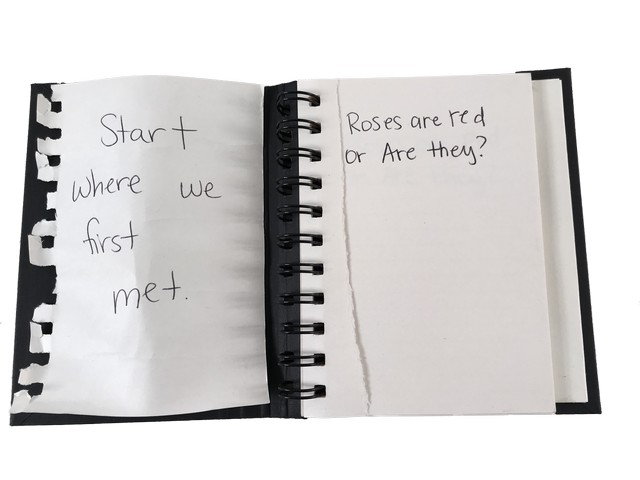 Start
where we
first
met.
Roses are red
or Are they?